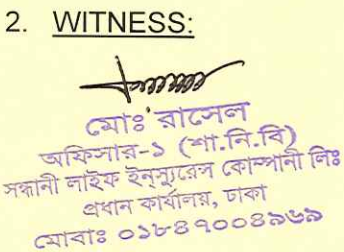 2. WITNESS:
মোঃ রাসেল
অফিসার-১ (শা.নি.বি)
সন্ধানী লাইফ ইন্সুরেন্স কোম্পানী লিঃ
প্রধান কার্যালয়, ঢাকা
মোবাঃ ০১৮৪৭০০৪৯৬৯